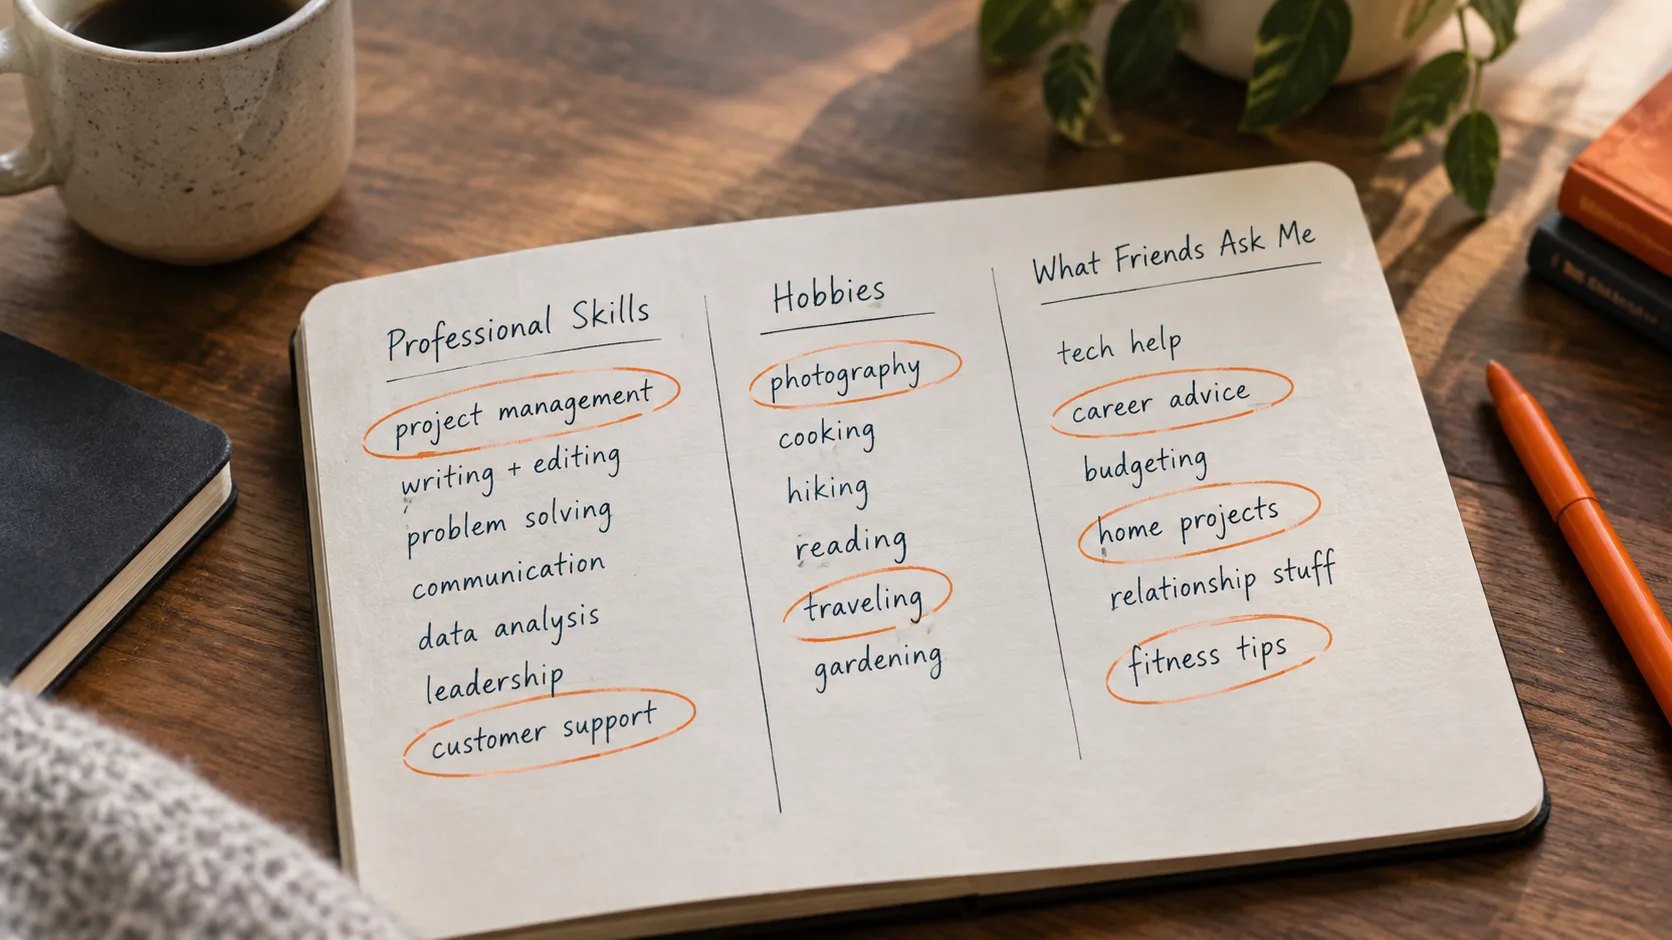 Professional Skills
project management
writing + editing
problem solving
communication
data analysis
leadership
customer support
Hobbies
photography
cooking
hiking
reading
traveling
gardening
What Friends Ask Me
tech help
career advice
budgeting
home projects
relationship stuff
fitness tips